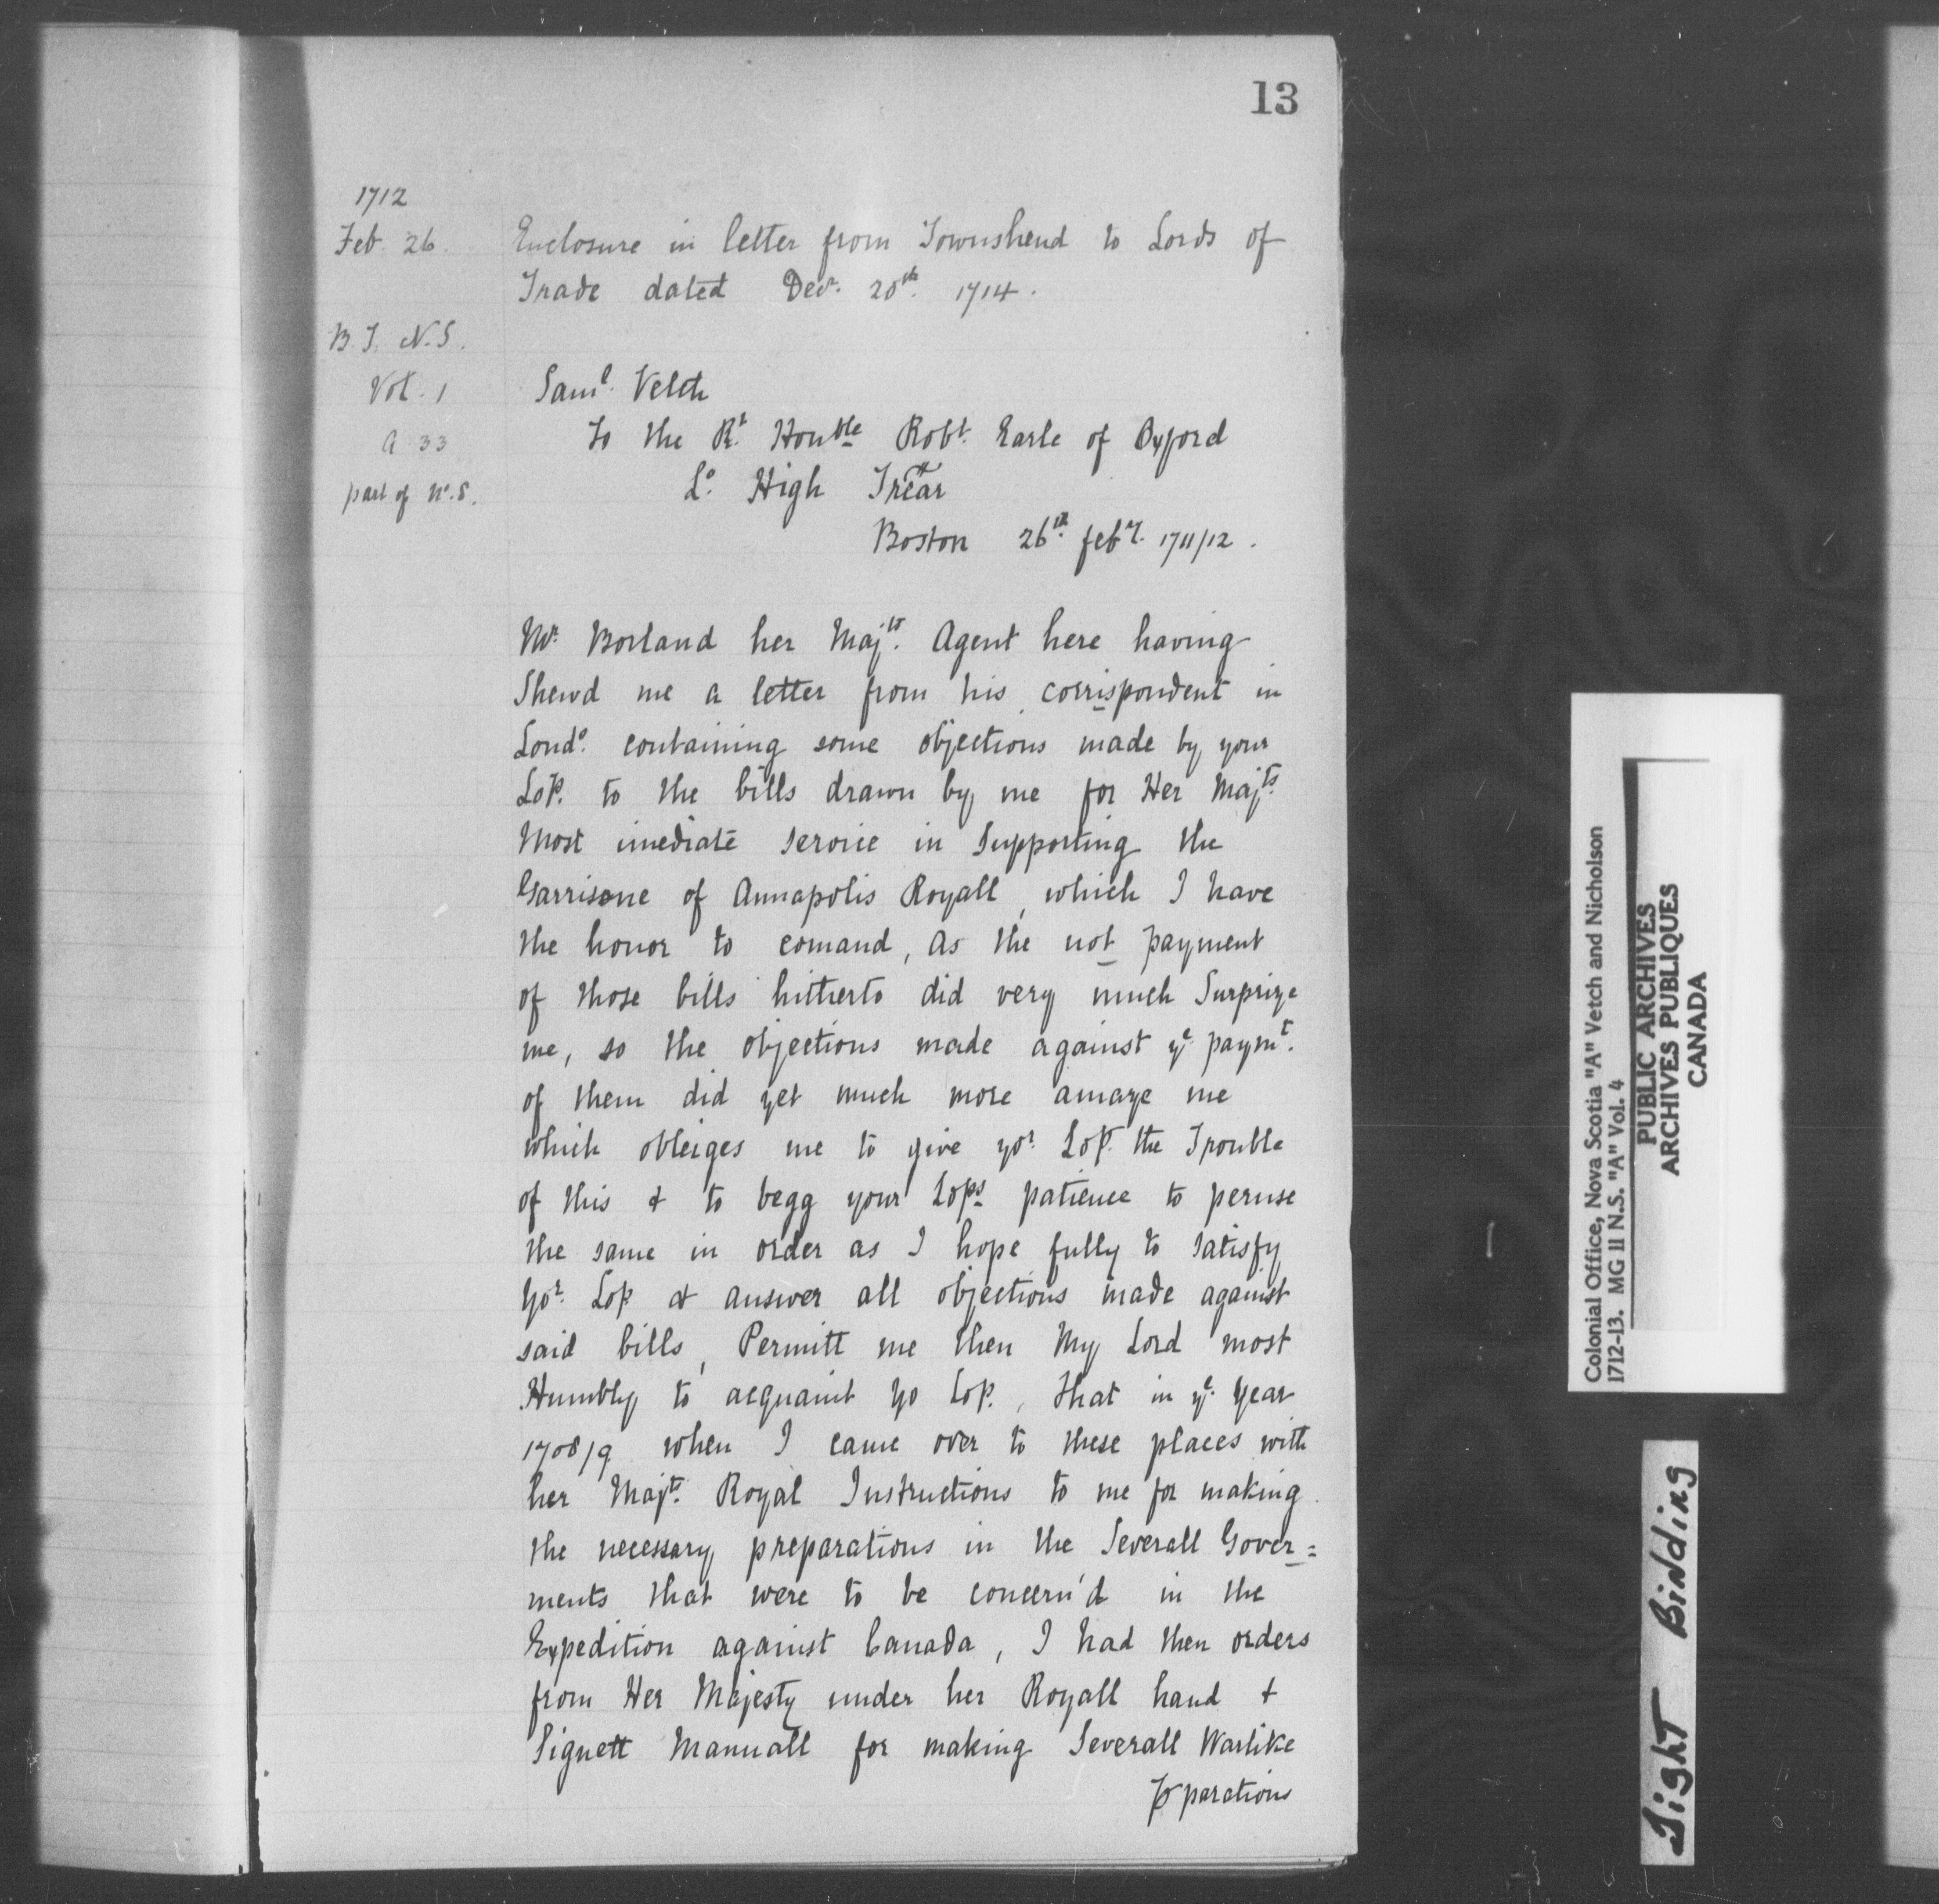 13
1712
Feb. 26.
Enclosure in letter from Townshend to Lords of
Trade dated Decr. 20th. 1714.
B. T. N.S.
Vol. 1
A 33
part of No. 8.
Saml. Vetch
To the Rt. Honble Robt. Earle of Oxford
Lo. High Trear
Boston 26th. febry. 1711/12.
Mr. Borland her Majts. Agent here having
Shewd me a letter from his corrispondent in
Londo. containing some objections made by your
Lop. to the bills drawn by me for Her Majts.
Most imediate service in Supporting the
Garrisone of Annapolis Royall, which I have
the honor to comand, As the not payment
of those bills hitherto did very much Surprize
me, so the objections made against ye. paymt.
of them did yet much more amaze me
which obleiges me to give yor. Lop. the Trouble
of this & to begg your Lops patience to peruse
the same in order as I hope fully to satisfy
Yor. Lop & answer all objections made against
said bills, Permitt me then My Lord most
Humbly to acquaint Yo Lop., that in ye. Year
1708/9 when I came over to these places with
her Majts. Royal Instructions to me for making
the necessary preparations in the Severall Gover=
ments that were to be concern'd in the
Expedition against Canada, I had then orders
from Her Majesty under her Royall hand &
Signett Manuall for making Severall Warlike
Pparations
Colonial Office, Nova Scotia "A" Vetch and Nicholson
1712-13. MG 11 N.S. "A" Vol. 4
PUBLIC ARCHIVES
ARCHIVES PUBLIQUES
CANADA
Tight Binding